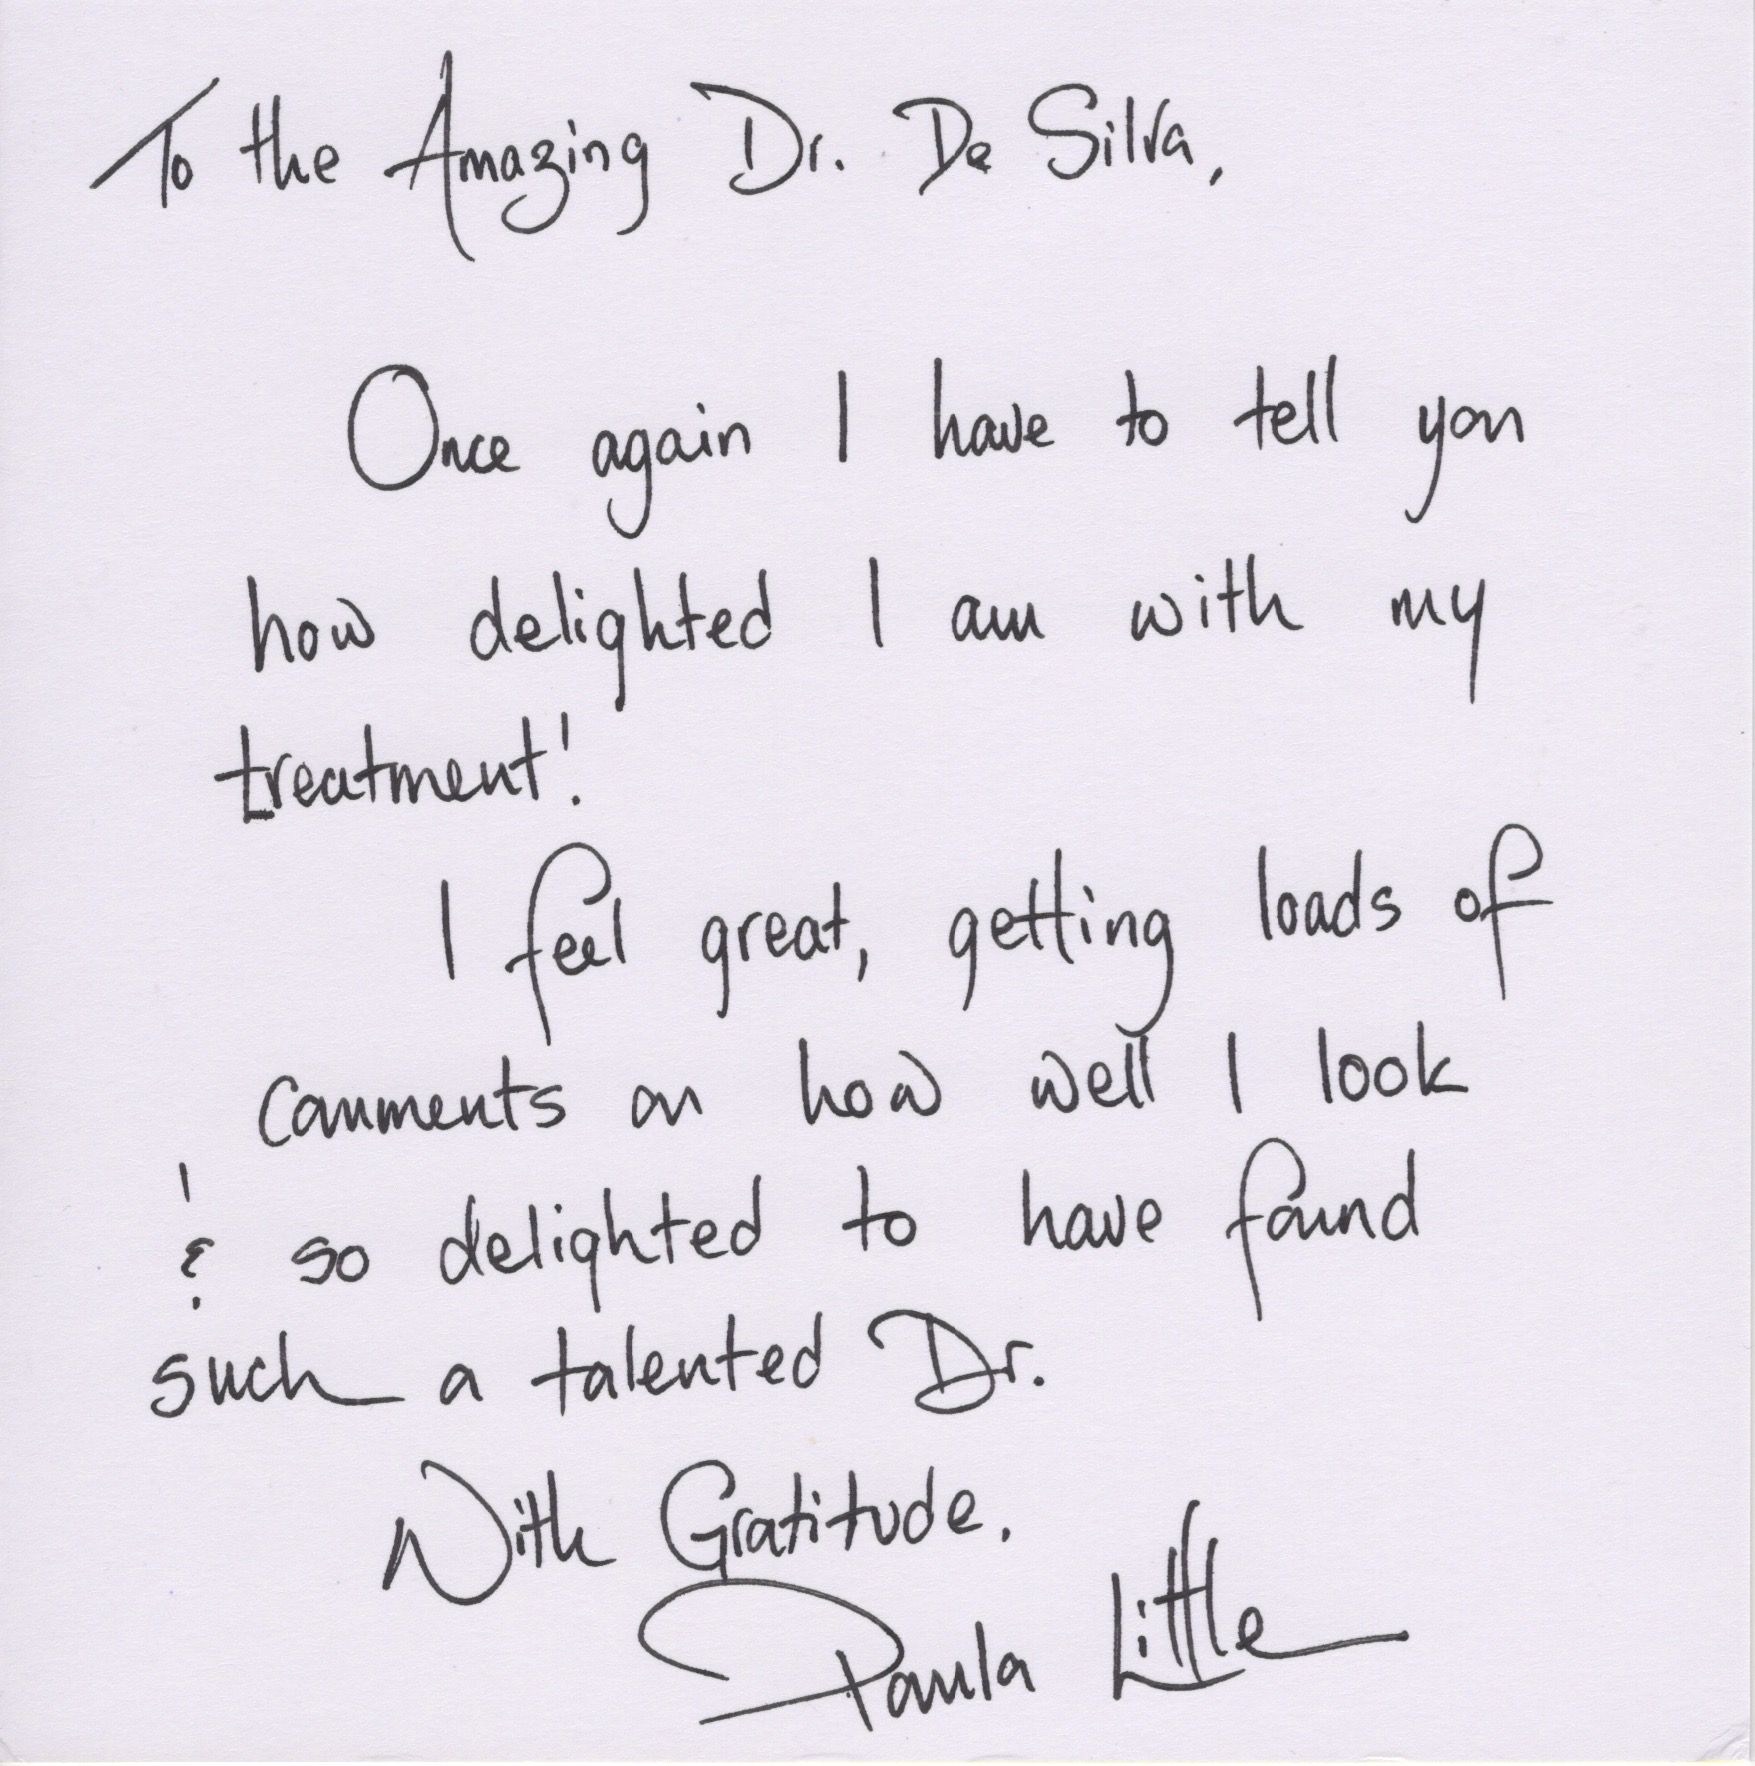 To the Amazing Dr. De Silva,
Once again I have to tell you
how delighted I am with my
treatment!
I feel great, getting loads of
comments on how well I look
& so delighted to have found
such a talented Dr.
With Gratitude.
Paula Little